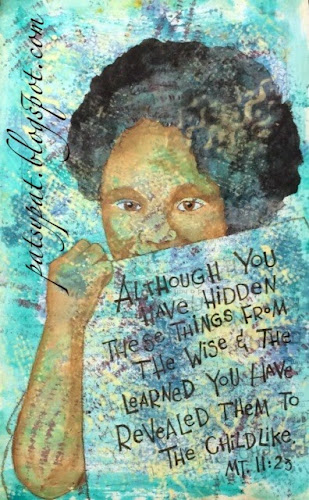 patsyput.blogspot.com
ALTHOUGH YOU
HAVE HIDDEN
THESE THINGS FROM
THE WISE & THE
LEARNED YOU HAVE
REVEALED THEM TO
THE CHILDLIKE.
MT. 11:25